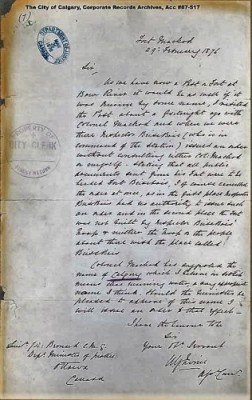 The City of Calgary, Corporate Records Archives, Acc #87-517
Fort Macleod
29th February 1876
Sir,
As we have now a Post or Fort at
Bow River it would be as well if it
was known by some name. I visited
the Post about a fortnight ago with
Colonel Macleod and when we were
there Inspector Brisebois (who is in
command of the Station) issued an order
without consulting either Col Macleod or
myself stating that all public
documents sent from this Fort were to be
headed Fort Brisebois. I of course cancelled
the order at once, as in the first place Inspector
Brisebois had no authority to issue such
an order and in the second place the Fort
was not built by Inspector Brisebois'
Troop & neither the troop or the people
about there wish the place called
Brisebois
Colonel Macleod has suggested the
name of Calgary which I believe in Scotch
means clear running water, a very appropriate
name I think. Should the Minister be
pleased to approve of this name I
will issue an order to that effect.
I have the honour to be
Sir
Your Obt Servant
Ottawa
Canada
CITY CLERK